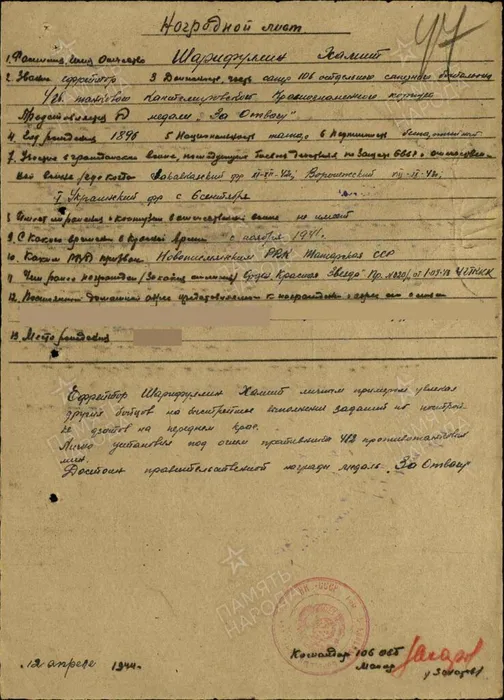 Наградной лист
47
1. Фамилия, имя, отчество Шарифуллин Хамит
2. Звание ефрейтор 3 Должность, часть сапер 106 отдельного саперного батальона
4 гв. танкового Кантемировского Краснознаменного корпуса
Представляется к медали "За Отвагу"
4. Год рождения 1896 5 Национальность 6 Партийность беспартийный
7. Участие в гражданской войне, последующих боевых действиях по защите СССР и отечественной
войне Закавказский фр Воронежский
I Украинский фр с сентября
8. Имеет ли ранения и контузии в отечественной войне не имеет
9. С какого времени в Красной Армии с ноября 1941.
10. Каким РВК призван РВК Татарская ССР
11. Чем ранее награжден (за какие отличия) Красная Звезда
12. Постоянный домашний адрес представляемого к награждению и адрес его семьи
13. Место рождения
Ефрейтор Шарифуллин Хамит личным примером увлекал
других бойцов на быстрейшее выполнение заданий по построй-
ке дзотов на переднем крае.
Лично установил под огнем противника 412 противотанковых
мин.
Достоин правительственной награды медаль "За Отвагу"
Командир 106 ОСБ
Майор Захаров
12 апреля 1944г.
ПАМЯТЬ НАРОДА